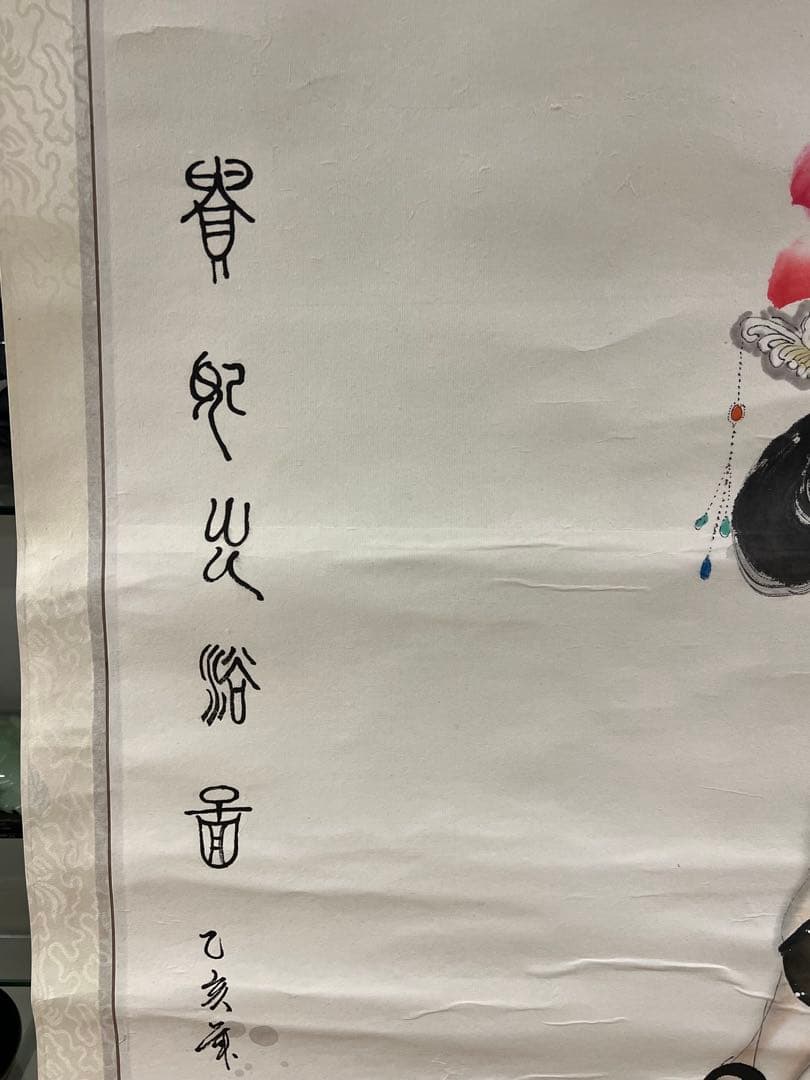 貴妃出浴圖乙亥